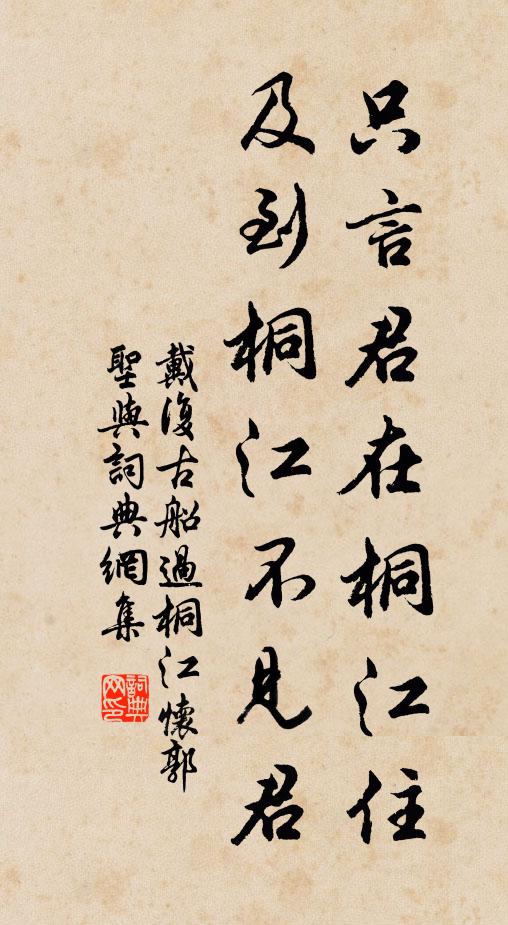 只言君在桐江住
及到桐江不見君
戴復古船過桐江懷郭
聖與詞典網集
詞典
网印